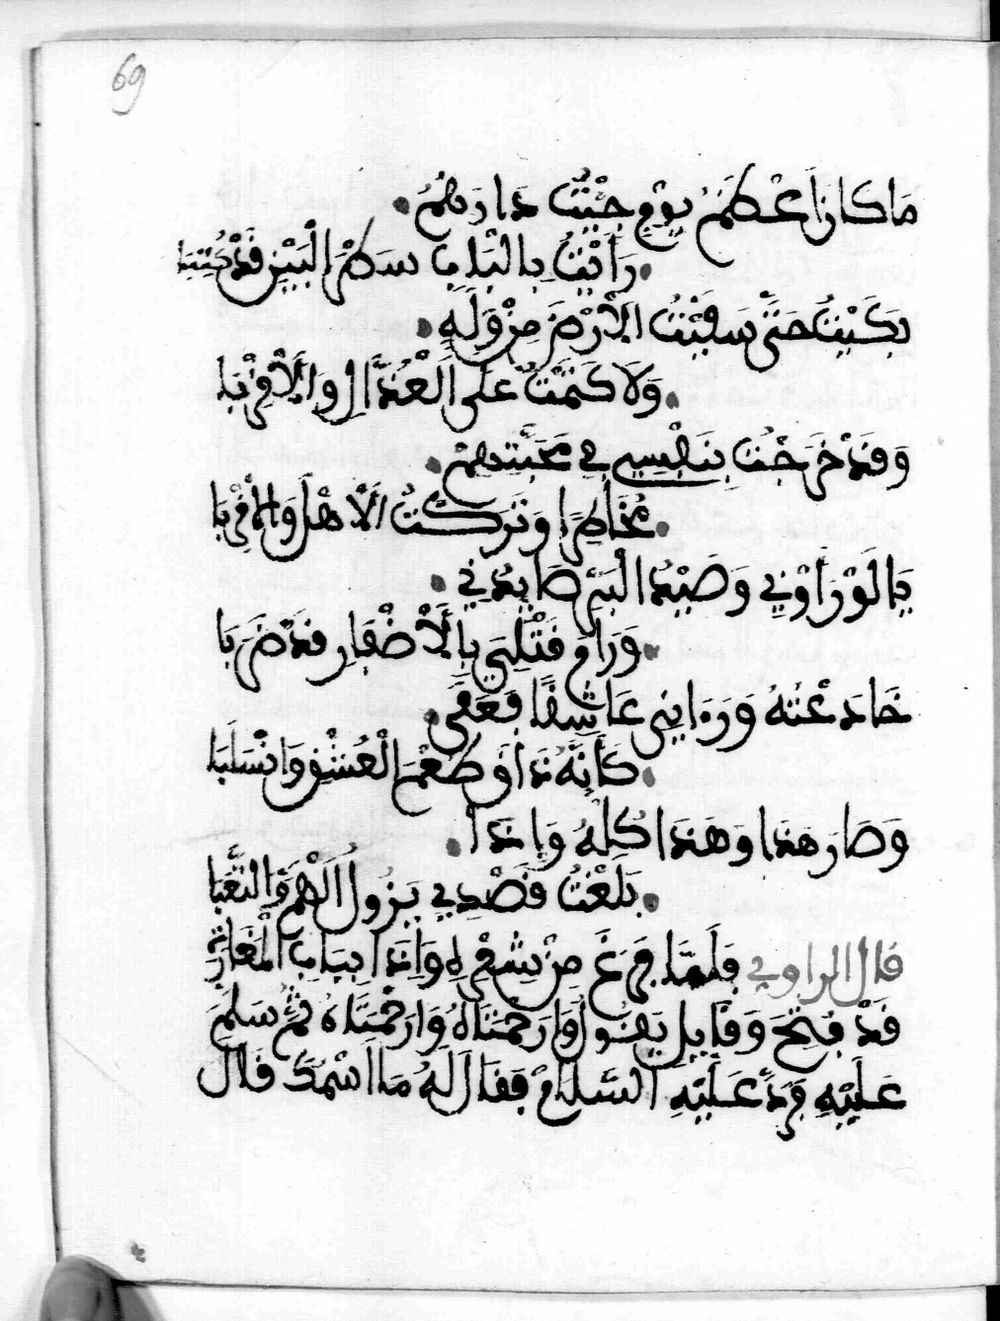 69
مَا كَانَ أَعْظَمَ يَوْمٍ جِئْتُ دَارَهُمُ
رَأَيْتُ بِالْبَابِ سَطْرَ الْبَيْنِ قَدْ كُتِبَا
بَكَيْتُ حَتَّى سَقَيْتُ الْأَرْضَ مِنْ وَلَهٍ
وَلَا كَتَمْتُ عَلَى الْعُذَّالِ وَالْأَقْرِبَا
وَقَدْ خَرَجْتُ بِنَفْسِي فِي مَحَبَّتِهِمْ
مُخَاطِرًا وَتَرَكْتُ الْأَهْلَ وَالْأَقْرِبَا
يَا لَوْ رَأَوْنِي وَصَيْدُ الْبَرِّ صَايِدُنِي
وَرَامَ قَتْلِي بِالْأَضْفَارِ قَدْ ضَرَبَا
خَادَعْتُهُ وَرَءَانِي عَاشِقًا فَعَفَى
كَأَنَّهُ ذَاقَ طَعْمَ الْعِشْقِ وَانْسَلَبَا
وَصَارَ هَذَا وَهَذَا كُلُّهُ وَإِذَا
بَلَغْتُ قَصْدِي يَزُولُ الْهَمُّ وَالتَّعَبَا
قال الراوي فَلَمَّا فَرَغَ مِنْ شِعْرِهِ وَإِذَا بِبَابِ الْمَغَارَةِ
قَدْ فُتِحَ وَقَايِلٍ يَقُولُ وَارَحْمَتَاهُ وَارَحْمَتَاهُ ثُمَّ سَلَّمَ
عَلَيْهِ فَرَدَّ عَلَيْهِ السَّلَامُ فَقَالَ لَهُ مَا اسْمُكَ قَالَ